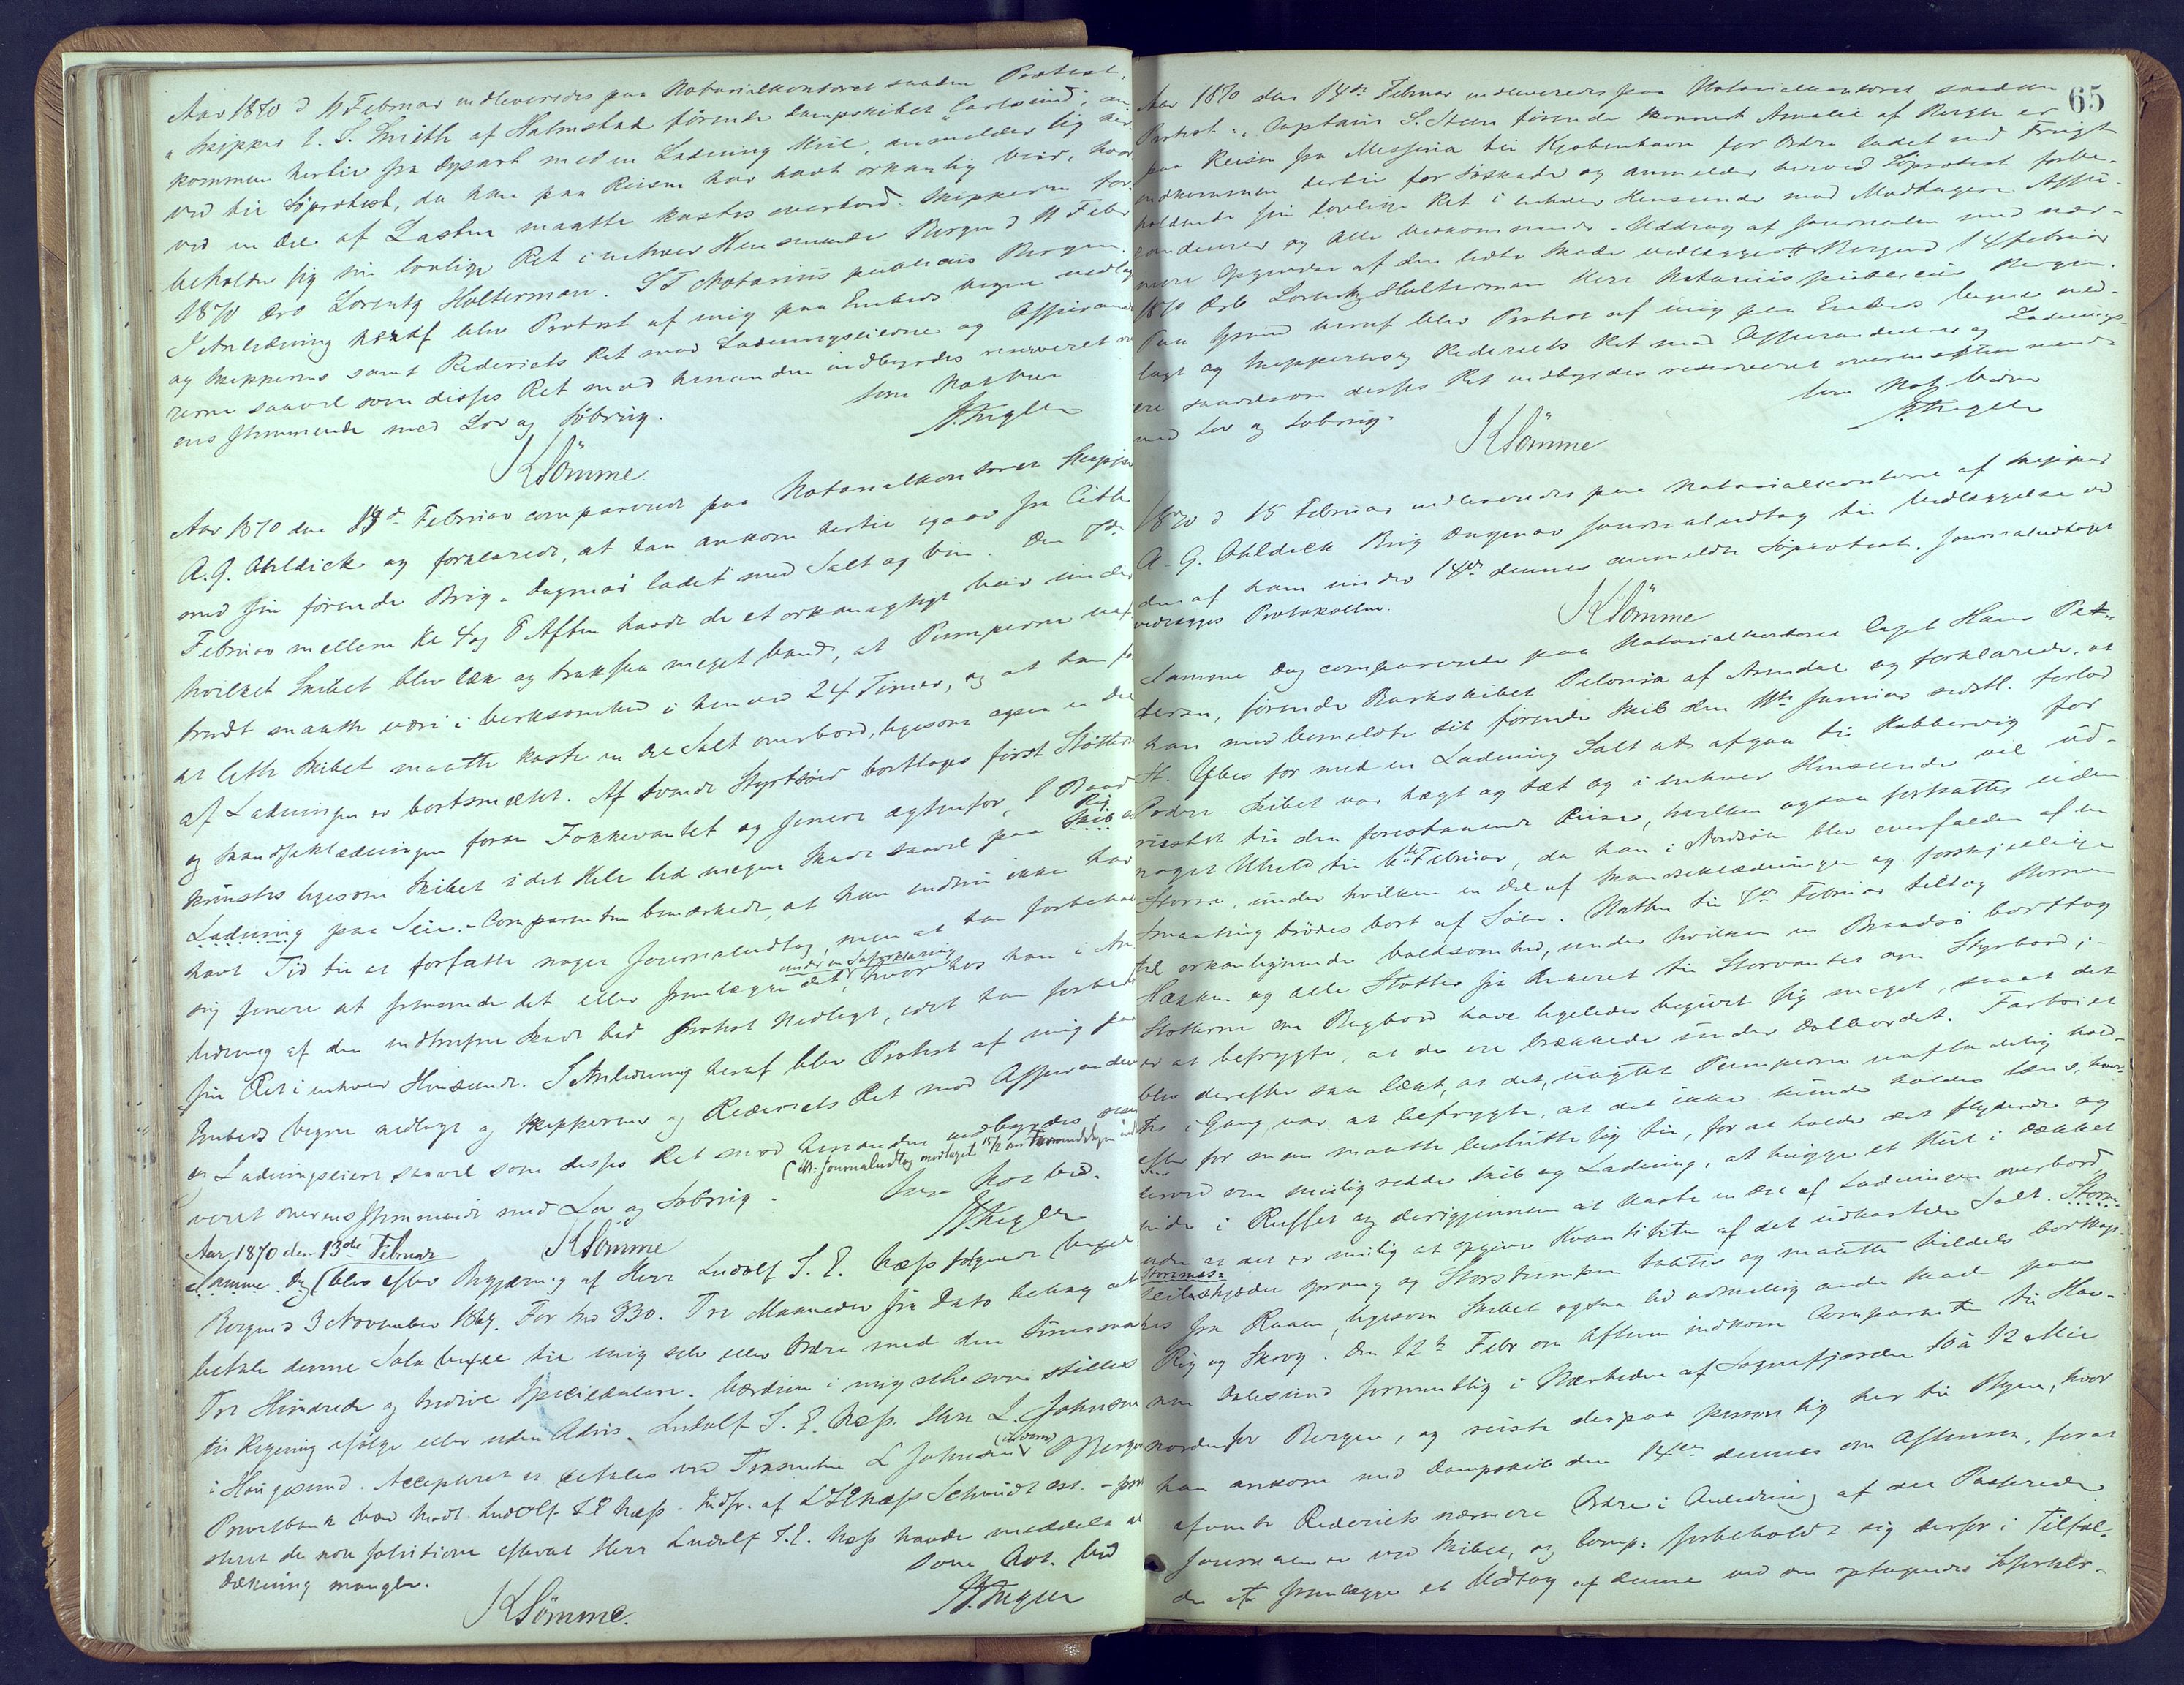 Aar 1870 d 11 Februar indleveredes paa Notarialkontoret saadan Protest.
„Skipper E. S. Smith af Halmstad förende Dampskibet Carlsund, an-
kommen hertil fra Dysart med en Ladning Kul, anmelder sig her-
ved til Söprotest, da han paa Reisen har havt orkanlig Veir, hvor-
ved en Del af Lasten maatte kastes overbord. Skipperen for-
beholder sig sin lovlige Ret i enhver Henseende Bergen d 11 Febr
1870 Lorentz Holterman. ST Notarius publicus Bergen.
I Anledning heraf blev Protest af mig paa Embeds Vegne nedlagt
og Skipperens samt Rederiets Ret mod Ladningseierne og Assurandö
rerne saavel som disses Ret mod hinanden indbyrdes reserveret ov
ens stemmende med Lov og Söbrug.
som Not Vidne
Klömme.
Aar 1870 den 14de Februar comparerede paa Notarialkontoret Skipper
A. G. Ohldick og forklarede, at han ankom hertil igaar fra Cette
med sin förende Brig „Dagmar" ladet med Salt og Vin. Den 7de
Februar mellem Kl 4 og 8 Aften havde de et orkanagtigt Veir under
hvilket Skibet blev læk og trak saa meget Vand, at Pumperne uaf-
brudt maatte være i Virksomhed i henved 24 Timer, og at han for
at lette Skibet maatte kaste en Del Salt overbord, ligesom ogsaa en Del
af Ladningen er bortsmeltet. Af svære Styrtsöer borttoges först Stötterne
og Skandseklædningen foran Fokkevantet og senere agtenfor, 1 Baad
knustes ligesom Skibet i det Hele led megen Skade saavel paa Skib Rig og
Ladning paa Seil. Comparenten bemærkede, at han endnu ikke har
havt Tid til at forfatte noget Journaludtog, men at han forbeholder
sig senere at fremsende det eller fremlægge det under en Söforklaring, hvorhos han i An-
ledning af den indtrufne Skade bad Protest nedlagt, idet han forbeholdt
sin Ret i enhver Henseende. I Anledning heraf blev Protest af mig paa
Embeds Vegne nedlagt og Skipperens og Rederiets Ret mod Assurandörer
og Ladningseiere saavel som disses Ret mod hinanden indbyrdes reser
veret overensstemmende med Lov og Söbrug. (iflg. Journaludtog modtaget 15/2 om Formiddagen
som Not Vid.
Aar 1870 den 13de Februar Klömme
Samme Dag (blev efter Begjæring af Herr Ludolf J. E. Næss fölgende Vexel:
Bergen d 3 November 1869. For 330. Tre Maaneder fra Dato behag at
betale denne Sola Vexel til mig selv eller Ordre med den Summa
Tre Hundrede og tredive Speciedaler. Værdien i mig selv som stilles
til Regning ifölge eller uden Advis. Ludolf J. E. Næss. Herr L. Johnsen
i Haugesund. Accepteret at betales ved Trasenten L Johnsen Bergens
Privatbank Ludolf J E Næss. Indfr. af L J E Næss Schmidt
de non solutione efterat Herr Ludolf J. E. Næss havde meddelt at
Dekning mangler.
som Not. Vid
Klömme.
65
Aar 1870 den 14de Februar indleveredes paa Notarialkontoret saadan
Protest: „Captain S. Steen förende Skonnert Amalie af Bergen er
paa Reisen fra Messina til Kjöbenhavn for Ordre ladet med Frugt
indkommen hertil for Söskade og anmelder herved Söprotest forbe-
holdende sin lovlige Ret i enhver Henseende mod Modtagere, Assu-
randeurer og Alle vedkommende. Uddrag af Journalen med nær-
mere Opgivelse af den lidte Skade vedlægges. Bergen d 14 Februar
1870 Lorentz Holterman Herr Notarius publicus Bergen.
Paa Grund heraf blev Protest af mig paa Embeds Vegne ned-
lagt og Skipperens og Rederiets Ret mod Assurandeurer og Ladnings-
ere saavelsom disses Ret indbyrdes reserveret overensstemmende
med Lov og Söbrug.
som Not Vidne
Klömme
1870 d 15 Februar indleveredes paa Notarialkontoret af Skipper
A. G. Ohldick Brig Dagmar Journaludtog til Vedlæggelse ved
den af ham under 14de dennes anmeldte Söprotest. Journaludtoget
vedlægges Protokollen.
Klömme
Samme Dag comparerede paa Notarialkontoret Capt Hans Pet-
tersen, förende Barkskibet Peloria af Arendal og forklarede, at
han med bemeldte sit förende Skib den 11te Januar sidstl. forlod
St. Ybes for med en Ladning Salt at afgaa til Kobbervig for
Ordre. Skibet var tægt og tæt og i enhver Henseende vel ud-
rustet til den forestaaende Reise, hvilken ogsaa fortsattes uden
noget Uheld til 6te Februar, da han i Nordsöen blev overfalden af en
Storm, under hvilken en Del af Skandseklædningen og forskjellige
Smaating brödes bort af Söen. Natten til 7de Februar tiltog Stormen
til orkanlignende Voldsomhed, under hvilken en Braadsö borttog
Hækken og alle Stötter fra til Storvantet om Styrbord;
Stötterne om Bagbord have ligeledes begivet sig meget, saaat det
er at befrygte, at de ere brækkede under Dolbordet. Fartöiet
blev derefter saa lækt, at det, uagtet Pumperne uafladelig hold-
tes i Gang, var at befrygte, at det ikke kunde holdes læns, hvor-
efter man maatte beslutte sig til, for at holde det flydende og
derved om mulig redde Skib og Ladning, at hugge et Hul i Dækket
inde i Ruffet og derigjennem at kaste en Del af Ladningen overbord,
uden at det er mulig at opgive Kvantiteten af det udkastede Salt. Storm
Stormmers
Seilenskjöder sprang og Storstumpen toktes og maatte tildels bortkap-
pes fra Raaen, ligesom Skibet ogsaa led adskillig anden Skade paa
Rig og Skrog. Den 12te Febr om Aftenen indkom Comparenten til Hav-
nen formentlig i Nærheden af Sognefjorden 10 à 12 Mile
nordenfor Bergen, og reiste derpaa personlig her til Byen, hvor
han ankom med Dampskib den 14de dennes om Aftenen, for at
afvente Rederiets nærmere Ordre i Anledning af det Passerede.
Journalen er ved Skibet, og Comp: forbeholdt sig derfor i Tilfæl-
de at fremlægge et Udtog af denne ved en optagende Söforkla-